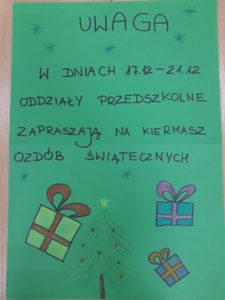 UWAGA
W DNIACH 17.12-21.12
ODDZIAŁY PRZEDSZKOLNE
ZAPRASZAJĄ NA KIERMASZ
OZDÓB ŚWIĄTECZNYCH